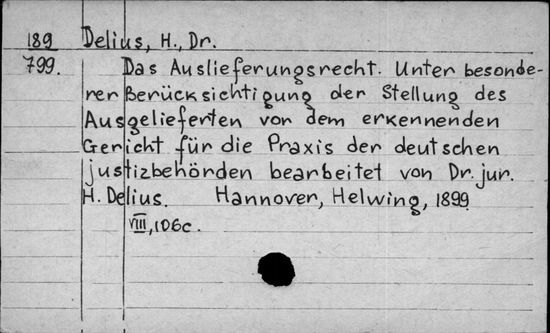 189 Delius, H., Dr.
799. Das Auslieferungsrecht. Unter besonde-
rer Berücksichtigung der Stellung des
Ausgelieferten vor dem erkennenden
Gericht für die Praxis der deutschen
justizbehörden bearbeitet von Dr. jur.
H. Delius. Hannover, Helwing, 1899
VIII, 106c.